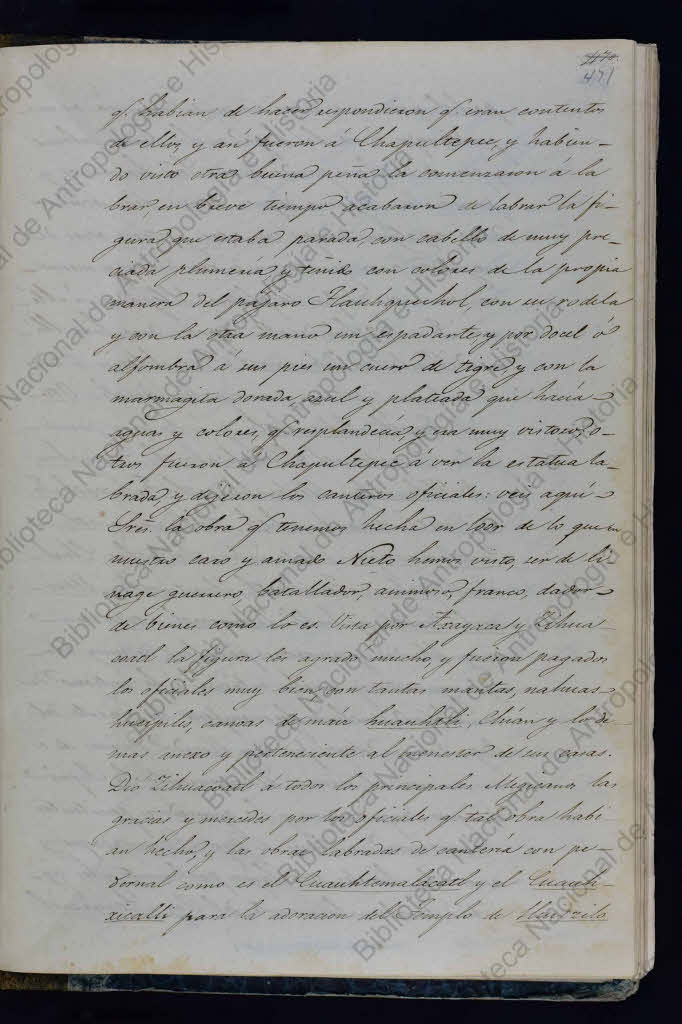 471
q. habian de hacer respondieron q. eran contentos
de ello, y asi fueron á Chapultepec, y habien-
do visto otra buena peña la comenzaron á la
brar, en breve tiempo acabaron de labrar la fi-
gura, que estaba parada con cabello de muy pre-
ciada plumería y teñido con colores de la propia
manera del pajaro Tlauhquechol, con su rodela
y con la otra mano un espadarte, y por docel ó
alfombra á sus pies un cuero de tigre, y con la
marmagita dorada, azul y plateada que hacía
aguas y colores, q. resplandecía, y era muy vistoso, o-
tros fueron á Chapultepec á ver la estatua la-
brada, y dijeron los canteros oficiales: veis aquí
Sres. la obra q. tenemos hecha en loor de lo que en
nuestro caro y amado Nieto hemos visto, ser de li-
nage guerrero, batallador, animoso, franco, dador
de bienes como lo es. Vista por Axayaca y Zihua
coatl la figura les agradó mucho, y fueron pagados
los oficiales muy bien con tantas mantas, nahuas
hueipiles, canoas de maiz huauhtli, Chian y lo de
mas anexo y perteneciente al menester de sus casas.
Dió Zihuacoatl á todos los principales Mexicanos las
gracias y mercedes por los oficiales q. tal obra habi-
an hecho, y las obras labradas de cantería con pe-
dernal como es el Cuauhtemalacatl y el Cuauh-
xicalli para la adoracion del Templo de Huitzilo
Biblioteca Nacional de Antropología e Historia